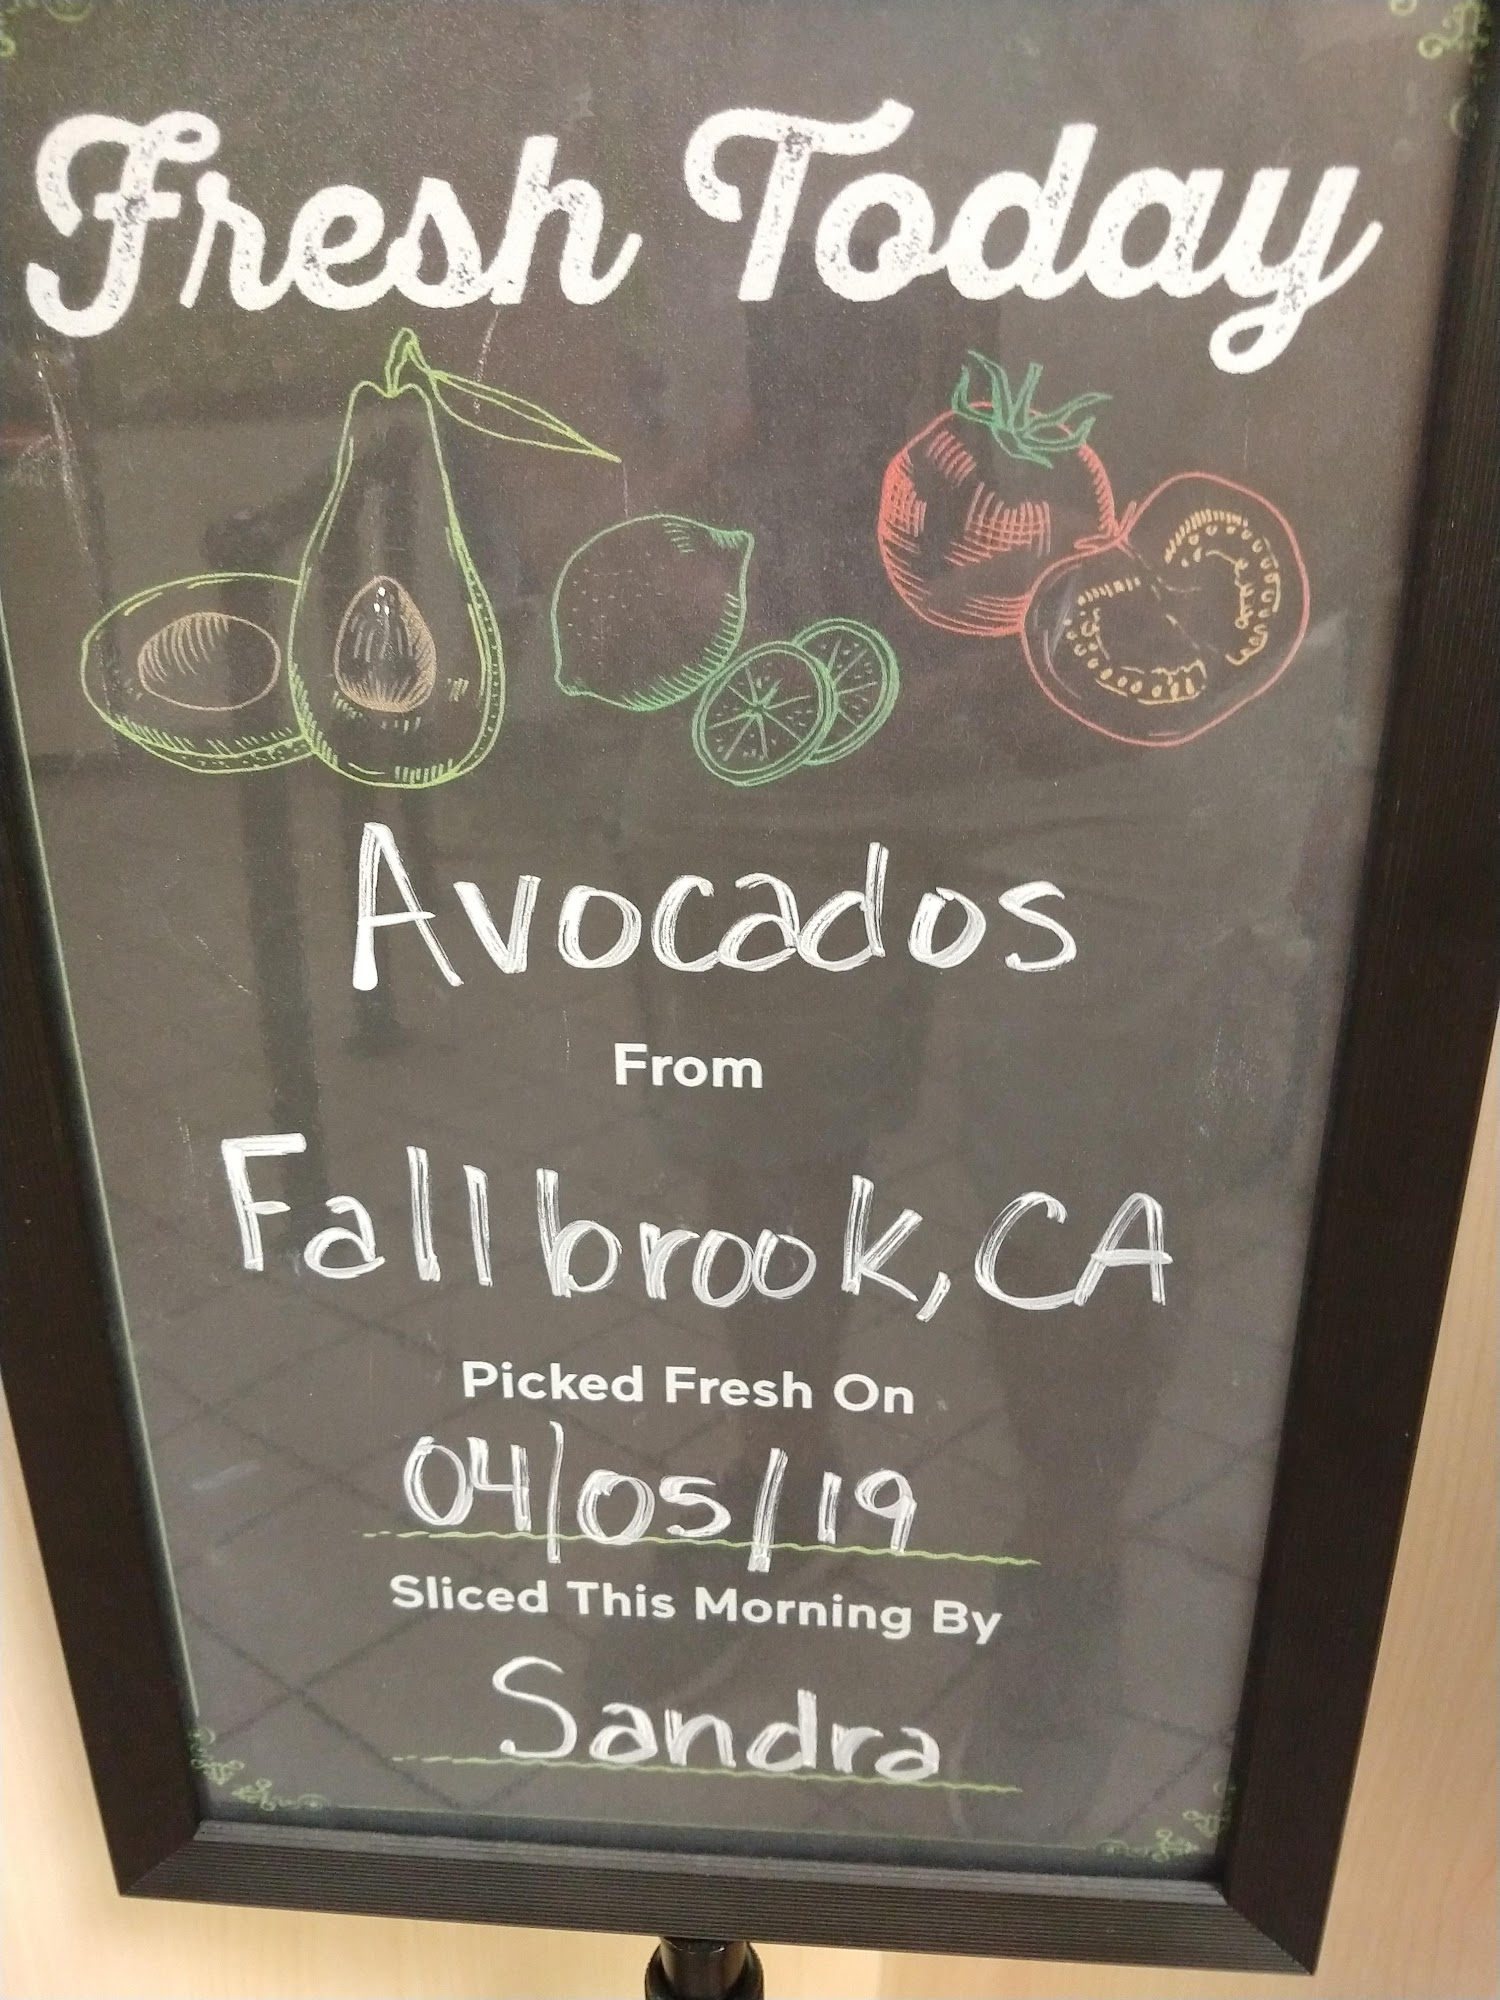 Fresh Today
Avocados
From
Fallbrook, CA
Picked Fresh On
04/05/19
Sliced This Morning By
Sandra